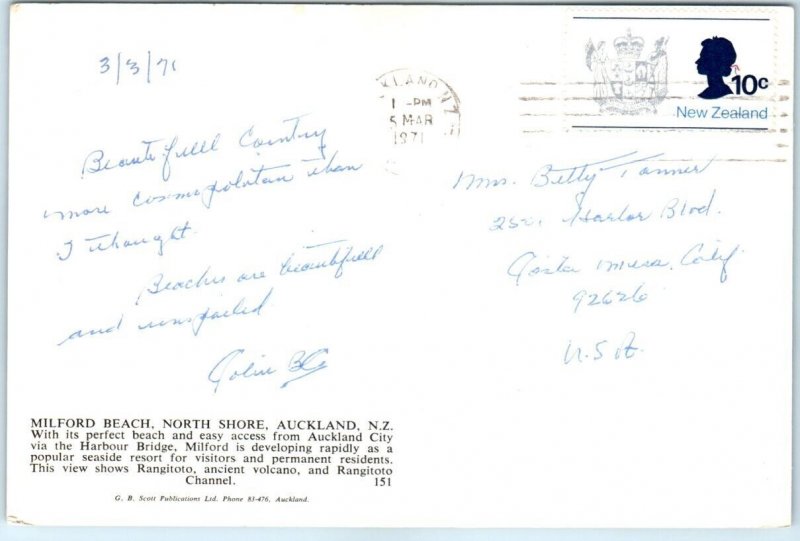 3/3/71
Beautifull Country
more cosmopolotan than
I thought.
Beaches are beautifull
and unspoiled
Colin
KLAND N.Z
1 -PM
5 MAR
1971
10c
New Zealand
Mrs. Betty Tanner
Harbor Blvd.
Costa Mesa, Calif
92626
U.S.A.
MILFORD BEACH, NORTH SHORE, AUCKLAND, N.Z.
With its perfect beach and easy access from Auckland City
via the Harbour Bridge, Milford is developing rapidly as a
popular seaside resort for visitors and permanent residents.
This view shows Rangitoto, ancient volcano, and Rangitoto
Channel. 151
G. B. Scott Publications Ltd. Phone 83-476, Auckland.